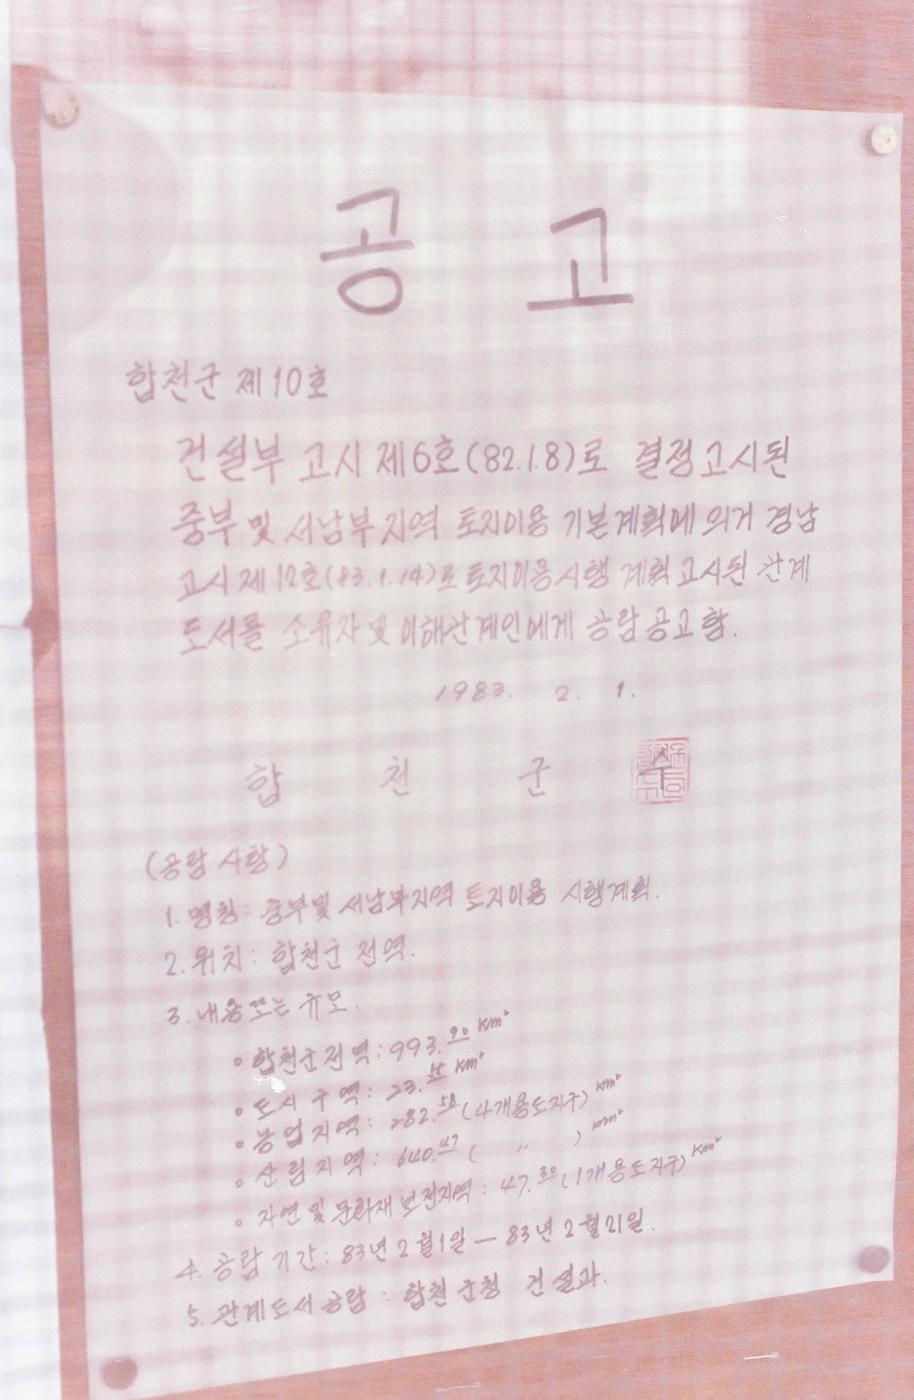 공 고
합천군 제10호
건설부 고시 제6호(82.1.8)로 결정고시된
중부 및 서남부지역 토지이용 기본계획에 의거 경남
고시 제12호(83.1.14)로 토지이용시행 계획 고시된 관계
도서를 소유자 및 이해관계인에게 공람 공고함.
1983. 2. 1.
합 천 군
(공람 사항)
1. 명칭: 중부및 서남부지역 토지이용 시행계획.
2. 위치: 합천군 전역.
3. 내용또는 규모.
∘ 합천군전역: 993.90 km²
∘ 도시구역: 23. km²
∘ 농업지역: 282.58 (4개용도지구) km²
∘ 산림지역: 640.47 ( 〃 ) km²
∘ 자연 및 문화재보전지역: 47.30 (1개용도지구) km²
4. 공람 기간: 83년 2월1일 — 83년 2월21일.
5. 관계도서 공람: 합천군청 건설과.